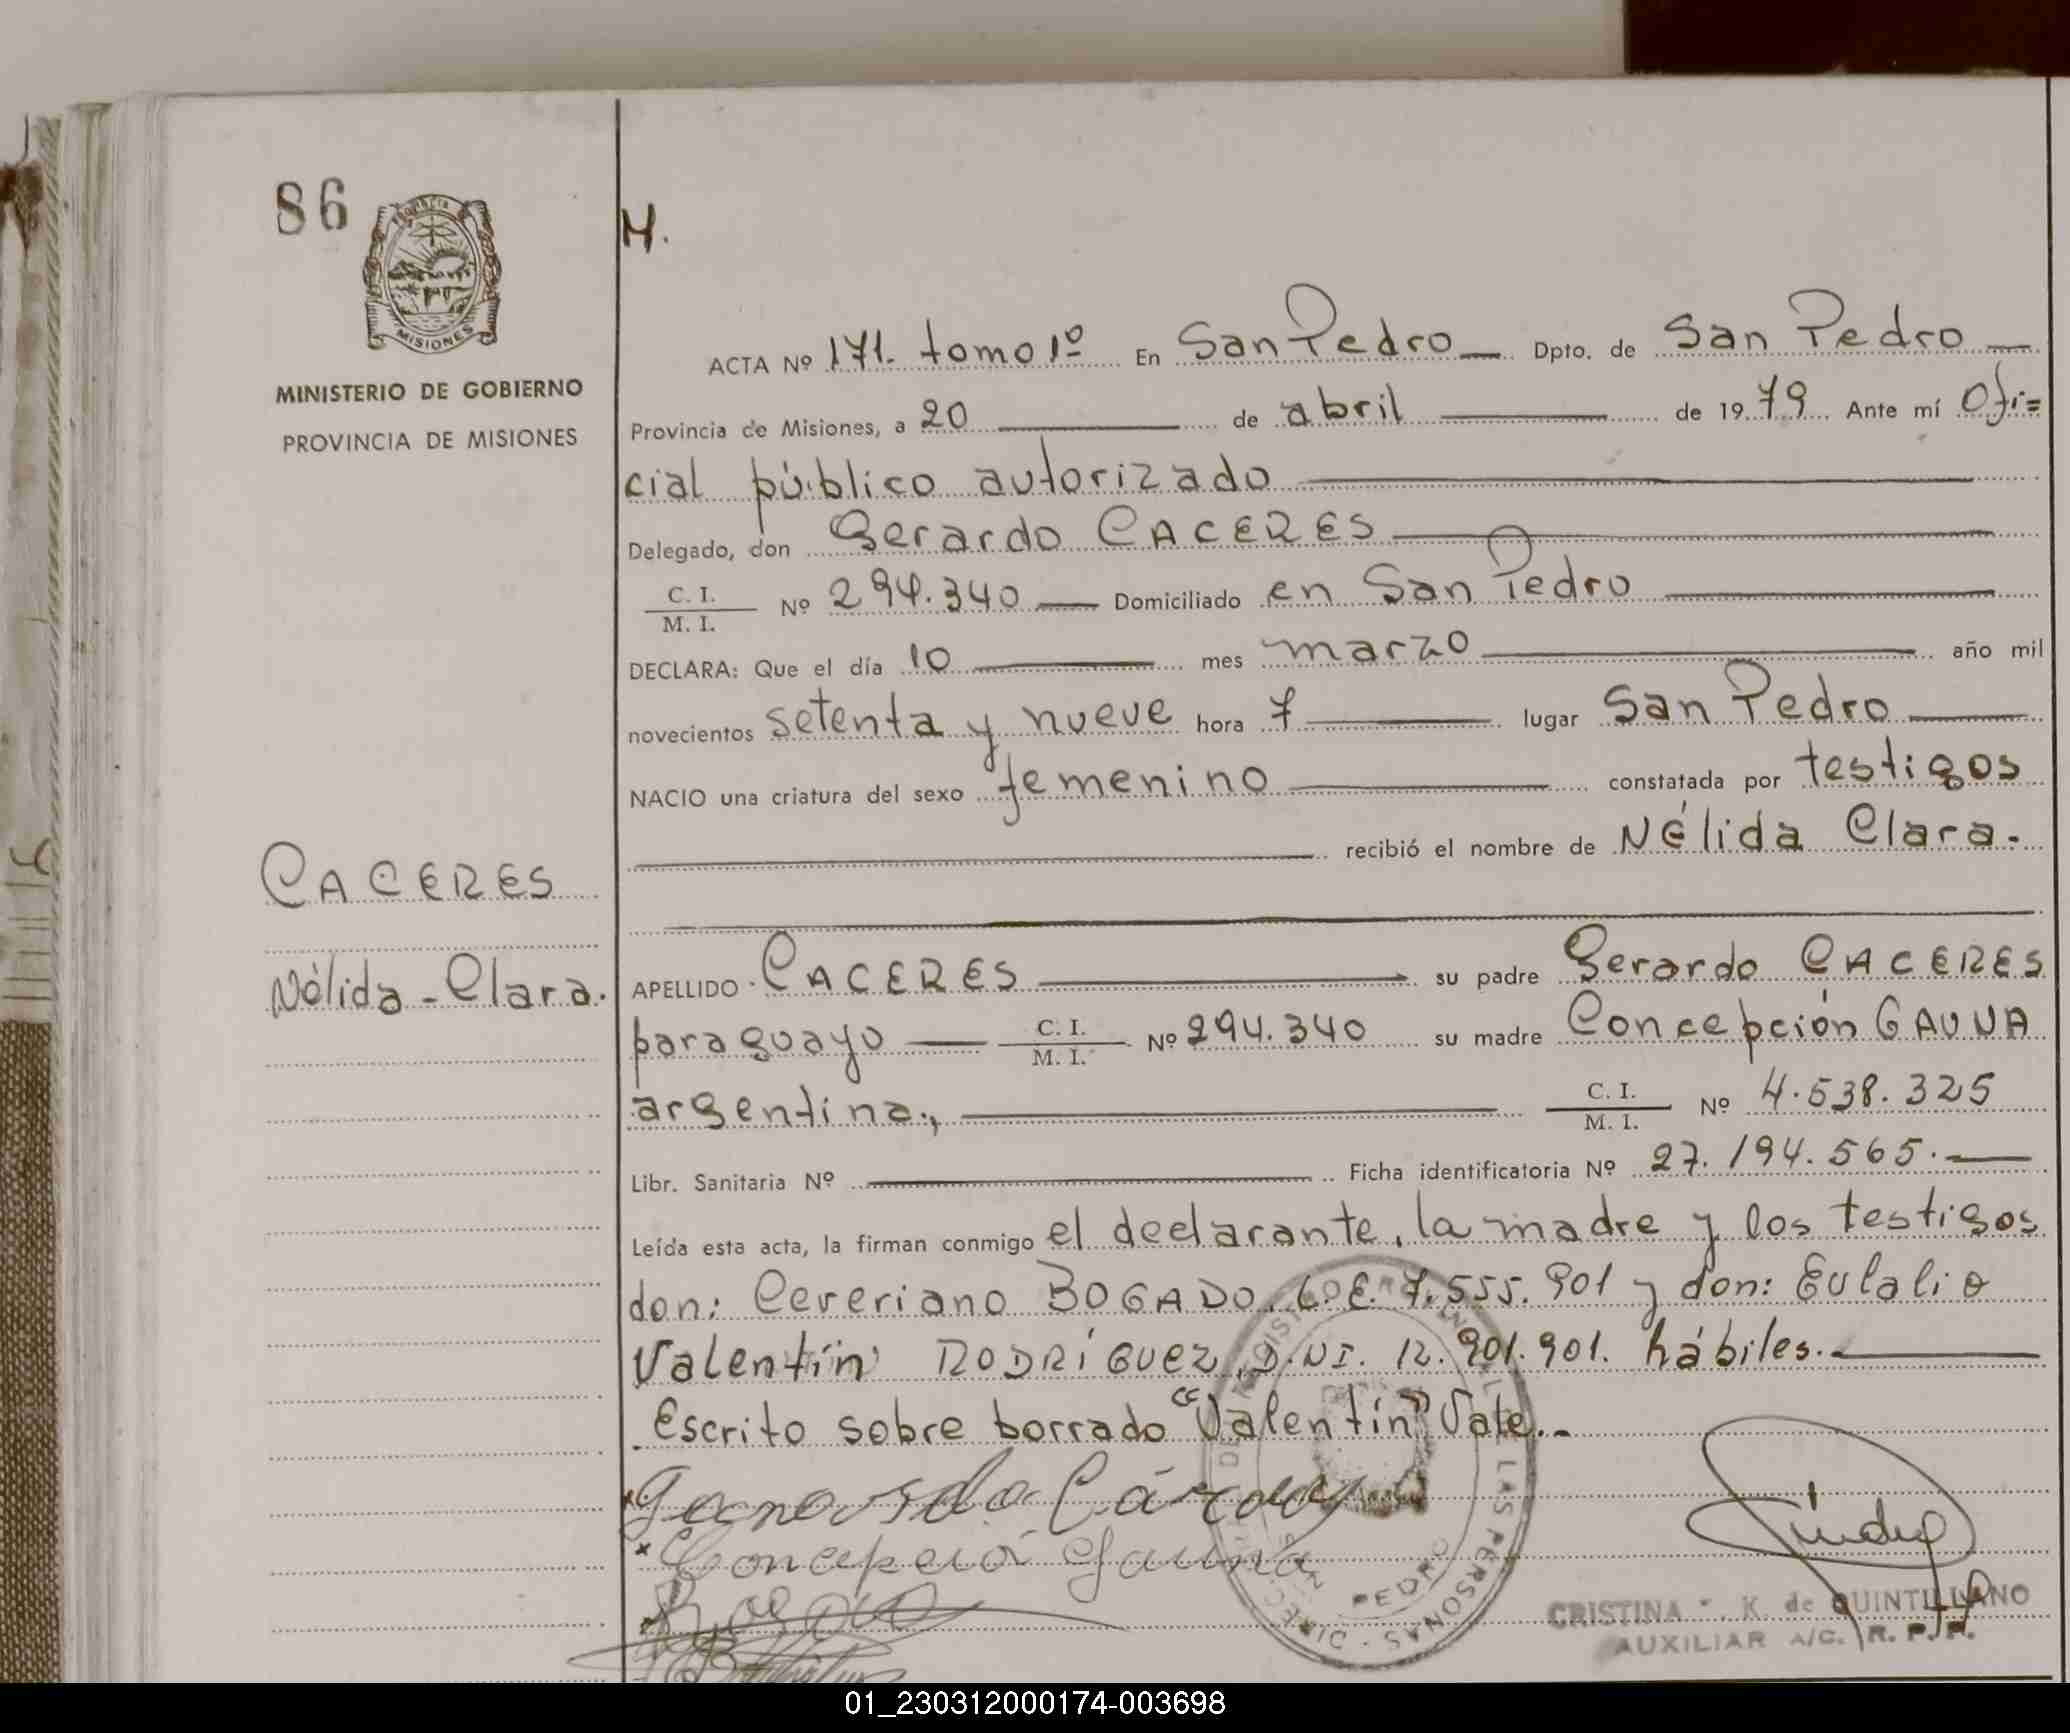 86
MISIONES
MINISTERIO DE GOBIERNO
PROVINCIA DE MISIONES
CACERES
Nélida - Clara.
M.
ACTA Nº 171. tomo 1º En San Pedro Dpto. de San Pedro
Provincia de Misiones, a 20 de abril de 1979 Ante mí Ofi=
cial público autorizado
Delegado, don Gerardo CACERES
C. I. / M. I. Nº 294.340 Domiciliado en San Pedro
DECLARA: Que el día 10 mes marzo año mil
novecientos setenta y nueve hora 7 lugar San Pedro
NACIO una criatura del sexo femenino constatada por testigos
recibió el nombre de Nélida Clara.
APELLIDO CACERES su padre Gerardo CACERES
paraguayo C. I. / M. I. Nº 294.340 su madre Concepción GAUNA
argentina., C. I. / M. I. Nº 4.538.325
Libr. Sanitaria Nº Ficha identificatoria Nº 27.194.565.
Leída esta acta, la firman conmigo el declarante, la madre y los testigos
don: Ceveriano BOGADO. L.E. 7.555.901 y don: Eulalio
Valentín RODRÍGUEZ, D.NI. 12.901.901. hábiles.
Escrito sobre borrado "Valentín" Vale.
Concepció Gauna
PEDRO
LAS PERSONAS
CRISTINA K. de QUINTILLANO
AUXILIAR A/C. R. P. P.
01_230312000174-003698